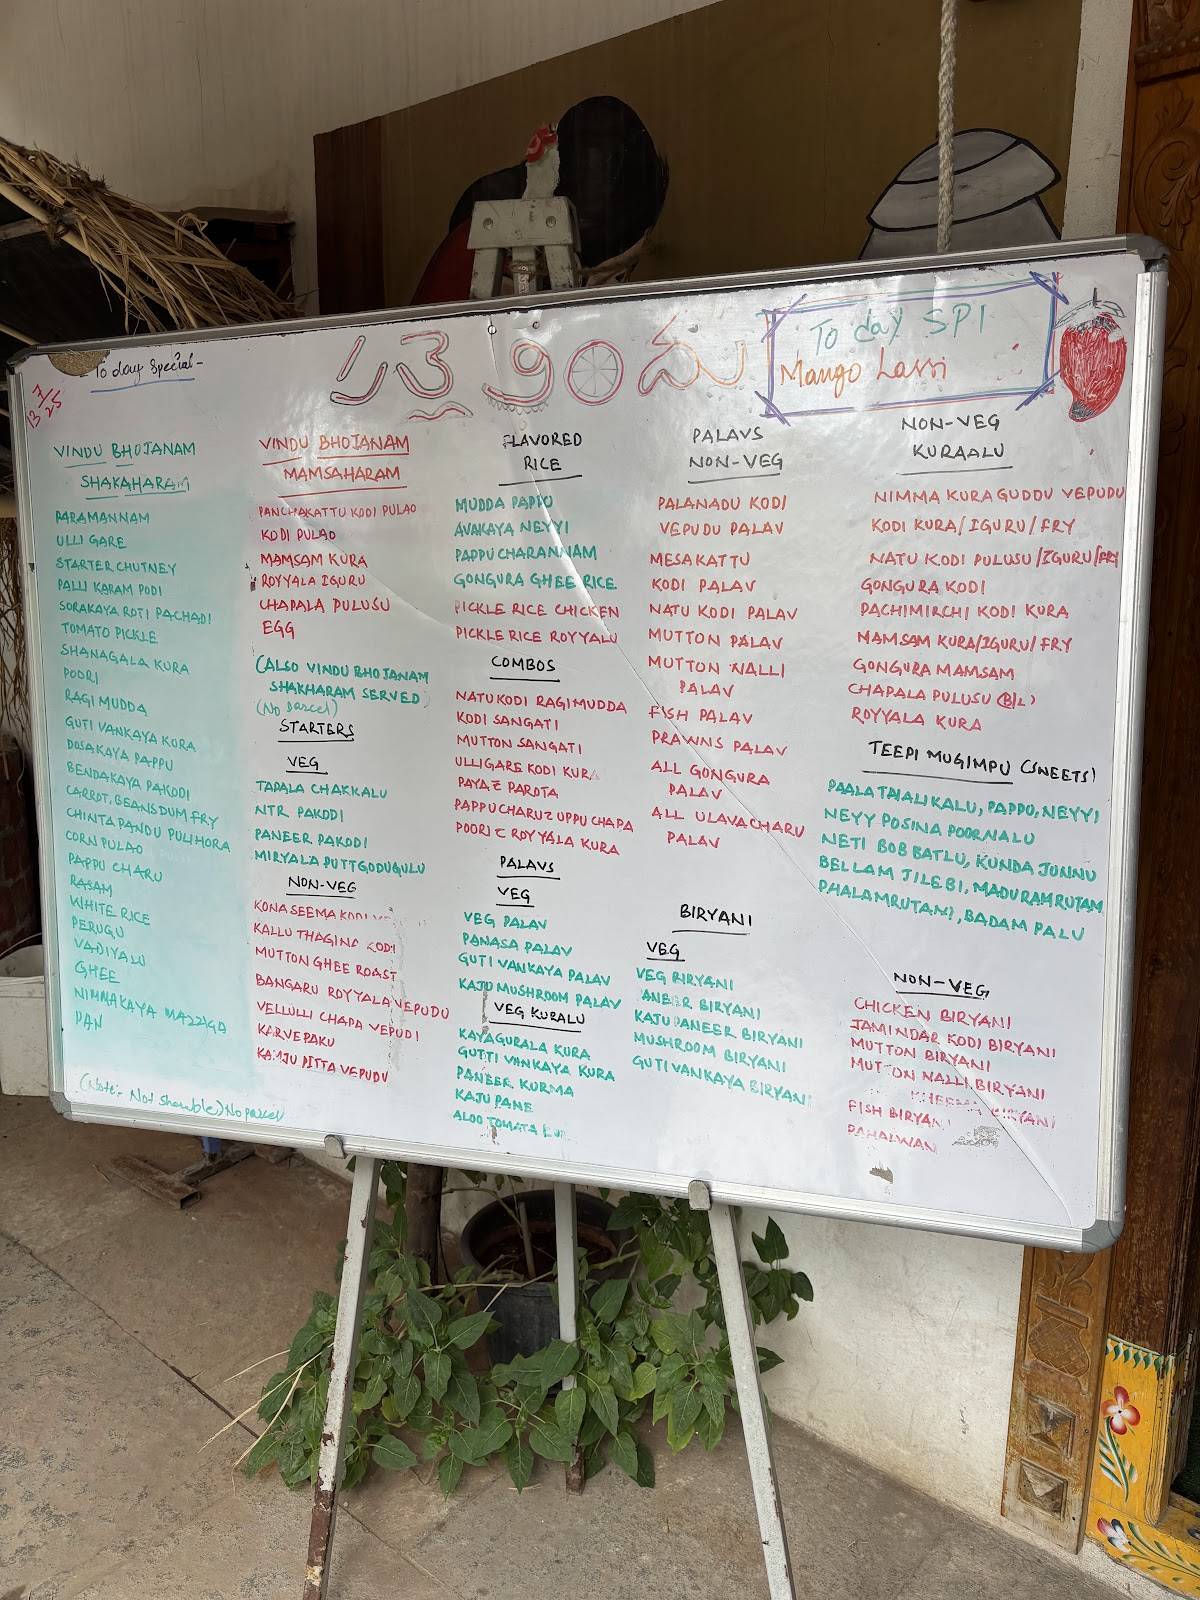 To day Special -
13 7/25
To day SPl
Mango Lassi
VINDU BHOJANAM
SHAKAHARAM
PARAMANNAM
ULLI GARE
STARTER CHUTNEY
PALLI KARAM PODI
SORAKAYA ROTI PACHADI
TOMATO PICKLE
SHANAGALA KURA
POORI
RAGI MUDDA
GUTI VANKAYA KURA
DOSAKAYA PAPPU
BENDAKAYA PAKODI
CARROT, BEANS DUM FRY
CHINTAPANDU PULIHORA
CORN PULAO
PAPPU CHARU
RASAM
WHITE RICE
PERUGU
VADIYALU
GHEE
NIMMAKAYA MAZZIGA
PAN
(Note:- Not Sharable) No parcel
VINDU BHOJANAM
MAMSAHARAM
PANCHAKATTU KODI PULAO
KODI PULAO
MAMSAM KURA
ROYYALA IGURU
CHAPALA PULUSU
EGG
(ALSO VINDU BHOJANAM
SHAKHARAM SERVED)
(No parcel)
STARTERS
VEG
TAPALA CHAKKALU
NTR PAKODI
PANEER PAKODI
MIRYALA PUTTGODUGULU
NON-VEG
KONASEEMA KODI
KALLU THAGINA KODI
MUTTON GHEE ROAST
BANGARU ROYYALA VEPUDU
VELLULLI CHAPA VEPUDI
KARVEPAKU
KAMJU PITTA VEPUDU
FLAVORED
RICE
MUDDA PAPPU
AVAKAYA NEYYI
PAPPU CHARANNAM
GONGURA GHEE RICE
PICKLE RICE CHICKEN
PICKLE RICE ROYYALU
COMBOS
NATUKODI RAGIMUDDA
KODI SANGATI
MUTTON SANGATI
ULLIGARE KODI KURA
PAYA Z PAROTA
PAPPUCHARU Z UPPU CHAPA
POORI Z ROYYALA KURA
PALAVS
VEG
VEG PALAV
PANASA PALAV
GUTI VANKAYA PALAV
KAJU MUSHROOM PALAV
VEG KURALU
KAYAGURALA KURA
GUTTI VANKAYA KURA
PANEER KURMA
KAJU PANE
ALOO TOMATA KUR
PALAVS
NON-VEG
PALANADU KODI
VEPUDU PALAV
MESAKATTU
KODI PALAV
NATU KODI PALAV
MUTTON PALAV
MUTTON NALLI
PALAV
FISH PALAV
PRAWNS PALAV
ALL GONGURA
PALAV
ALL ULAVACHARU
PALAV
BIRYANI
VEG
VEG BIRYANI
ANEER BIRYANI
KAJU PANEER BIRYANI
MUSHROOM BIRYANI
GUTI VANKAYA BIRYANI
NON-VEG
KURAALU
NIMMA KURA GUDDU VEPUDU
KODI KURA/IGURU/FRY
NATU KODI PULUSU/IGURU/FRY
GONGURA KODI
PACHIMIRCHI KODI KURA
MAMSAM KURA/IGURU/FRY
GONGURA MAMSAM
CHAPALA PULUSU (B/L)
ROYYALA KURA
TEEPI MUGIMPU (SWEETS)
PAALA TALALIKALU, PAPPO, NEYYI
NEYY POSINA POORNALU
NETI BOBBATLU, KUNDA JUNNU
BELLAM JILEBI, MADURAMRUTAM
PHALAMRUTAM, BADAM PALU
NON-VEG
CHICKEN BIRYANI
JAMINDAR KODI BIRYANI
MUTTON BIRYANI
MUTTON NALLI BIRYANI
KHEEMA BIRYANI
FISH BIRYANI
PAHALWAN